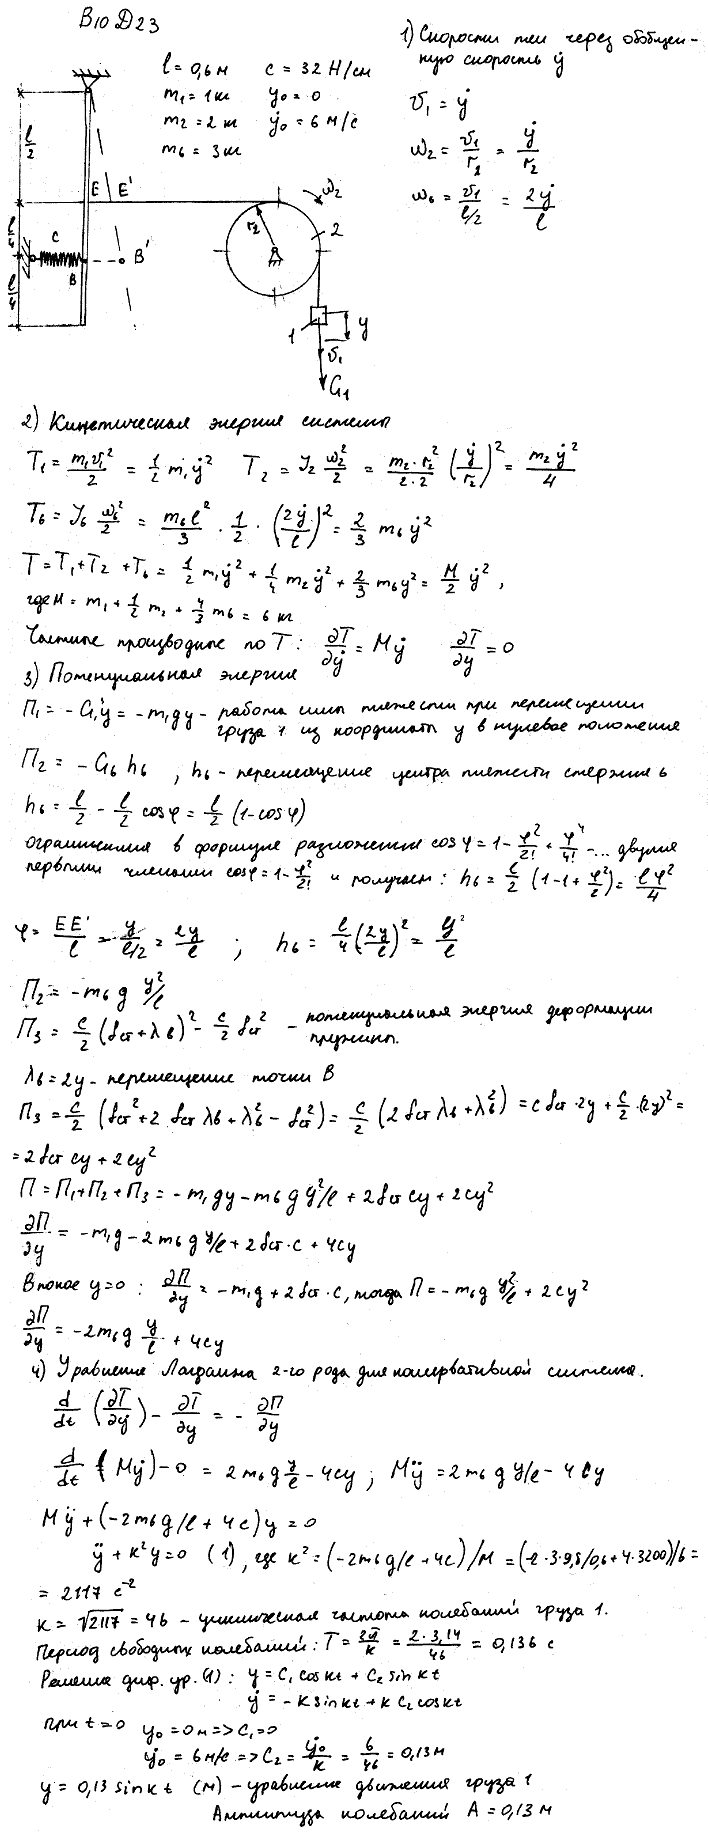 В10 Д23
l = 0,6 м   c = 32 Н/см
m₁ = 1 кг   y₀ = 0
m₂ = 2 кг   ẏ₀ = 6 м/с
m₆ = 3 кг
l/2
l/4
l/4
E E'
C
B
B'
r₂
ω₂
2
1
y
v̄₁
G₁
1) Скорости тел через обобщен-
ную скорость ẏ
v₁ = ẏ
ω₂ = v₁/r₂ = ẏ/r₂
ω₆ = v₁/(l/2) = 2ẏ/l
2) Кинетическая энергия системы
T₁ = m₁v₁²/2 = 1/2 m₁ẏ²   T₂ = J₂ ω₂²/2 = m₂·r₂²/2·2 (ẏ/r₂)² = m₂ẏ²/4
T₆ = J₆ ω₆²/2 = m₆l²/3 · 1/2 · (2ẏ/l)² = 2/3 m₆ẏ²
T = T₁+T₂+T₆ = 1/2 m₁ẏ² + 1/4 m₂ẏ² + 2/3 m₆y² = M/2 ẏ²,
где M = m₁ + 1/2 m₂ + 4/3 m₆ = 6 кг
Частные производные по T: ∂T/∂ẏ = Mẏ   ∂T/∂y = 0
3) Потенциальная энергия
П₁ = -G₁y = -m₁gy - работа силы тяжести при перемещении
груза 1 из координаты y в нулевое положение
П₂ = -G₆h₆, h₆ - перемещение центра тяжести стержня 6
h₆ = l/2 - l/2 cosφ = l/2 (1-cosφ)
ограничимся в формуле разложения cosφ = 1 - φ²/2! + φ⁴/4! - ... двумя
первыми членами cosφ = 1 - φ²/2! и получаем: h₆ = l/2 (1-1+φ²/2) = lφ²/4
φ = EE'/l = y/(l/2) = 2y/l ; h₆ = l/4 (2y/l)² = y²/l
П₂ = -m₆g y²/l
П₃ = c/2 (fст+λв)² - c/2 fст² - потенциальная энергия деформации
пружины.
λв = 2y - перемещение точки B
П₃ = c/2 (fст² + 2 fст λв + λв² - fст²) = c/2 (2 fст λв + λв²) = c fст · 2y + c/2 · (2y)² =
= 2 fст cy + 2cy²
П = П₁+П₂+П₃ = -m₁gy - m₆g y²/l + 2 fст cy + 2cy²
∂П/∂y = -m₁g - 2m₆g y/l + 2 fст·c + 4cy
В покое y=0: ∂П/∂y = -m₁g + 2 fст·c, тогда П = -m₆g y²/l + 2cy²
∂П/∂y = -2m₆g y/l + 4cy
4) Уравнение Лагранжа 2-го рода для консервативной системы.
d/dt (∂T/∂ẏ) - ∂T/∂y = - ∂П/∂y
d/dt (Mẏ) - 0 = 2m₆g y/l - 4cy ; Mÿ = 2m₆g y/l - 4cy
Mÿ + (-2m₆g/l + 4c)y = 0
ÿ + к²y = 0 (1), где к² = (-2m₆g/l + 4c)/M = (-2·3·9,8/0,6 + 4·3200)/6 =
= 2117 с⁻²
к = √2117 = 46 - циклическая частота колебаний груза 1.
Период свободных колебаний: T = 2π/к = 2·3,14/46 = 0,136 с
Решение диф. ур. (1): y = C₁ cos кt + C₂ sin кt
ẏ = -к sin кt + к C₂ cos кt
при t = 0   y₀ = 0 м => C₁ = 0
ẏ₀ = 6 м/с => C₂ = ẏ₀/к = 6/46 = 0,13 м
y = 0,13 sin кt (м) - уравнение движения груза 1
Амплитуда колебаний A = 0,13 м